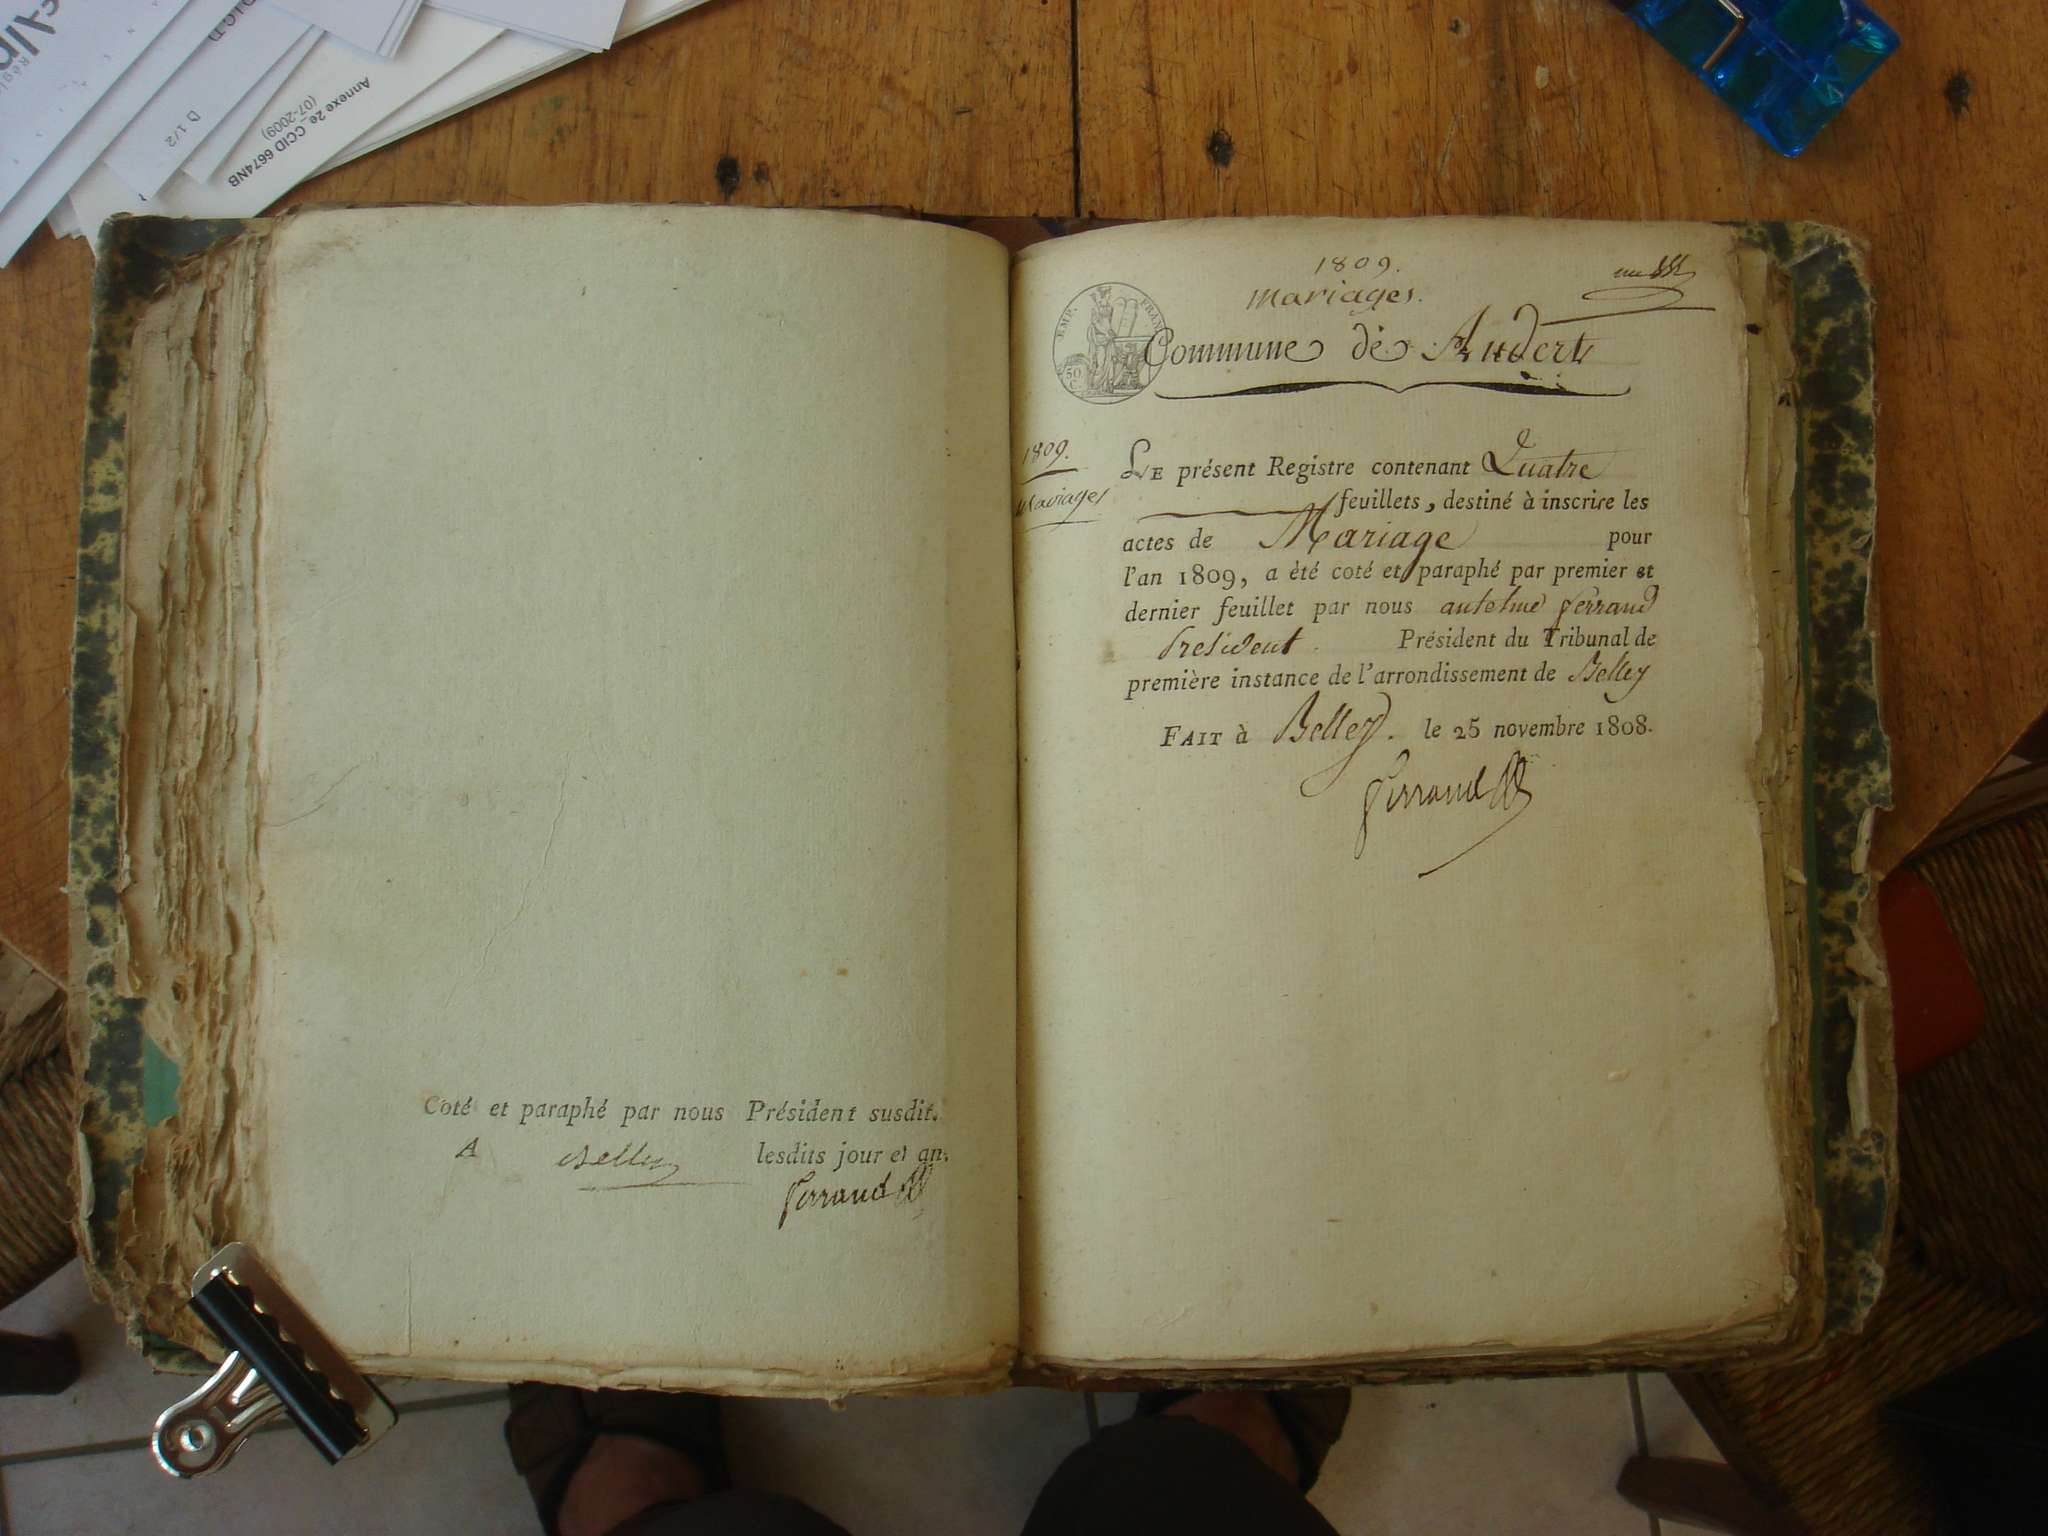 Annexe 2e_CCID 6674NB
(07-2009)
D 1/2
Coté et paraphé par nous Président susdit.
A Belley lesdits jour et an.
Ferrand
1809.
Mariages.
EMP. FRAN
50
C.
Commune de Andert
1809.
Mariages
LE présent Registre contenant Quatre
feuillets, destiné à inscrire les
actes de Mariage pour
l'an 1809, a èté coté et paraphé par premier et
dernier feuillet par nous antelme ferrand
President Président du Tribunal de
première instance de l'arrondissement de Belley
FAIT à Belley. le 25 novembre 1808.
Ferrand